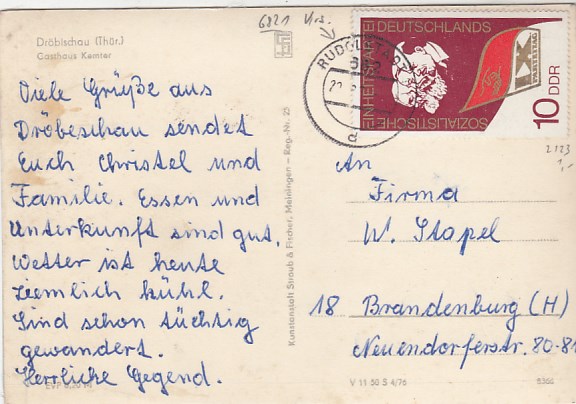 Dröbischau (Thür.)
Gasthaus Kemter
Viele Grüße aus
Dröbeschau sendet
Euch Christel und
Familie. Essen und
Unterkunft sind gut.
Wetter ist heute
ziemlich kühl.
Sind schon tüchtig
gewandert.
Herrliche Gegend.
EVP 0,20 M
Kunstanstalt Straub & Fischer, Meiningen - Reg.-Nr. 25
6821
RUDOLSTADT
d
SOZIALISTISCHE
EINHEITSPARTEI
DEUTSCHLANDS
IX.
PARTEITAG
10 DDR
2123
1,-
An
Firma
W. Stapel
18 Brandenburg (H)
Neuendorferstr. 80-81
V 11 50 S 4/76